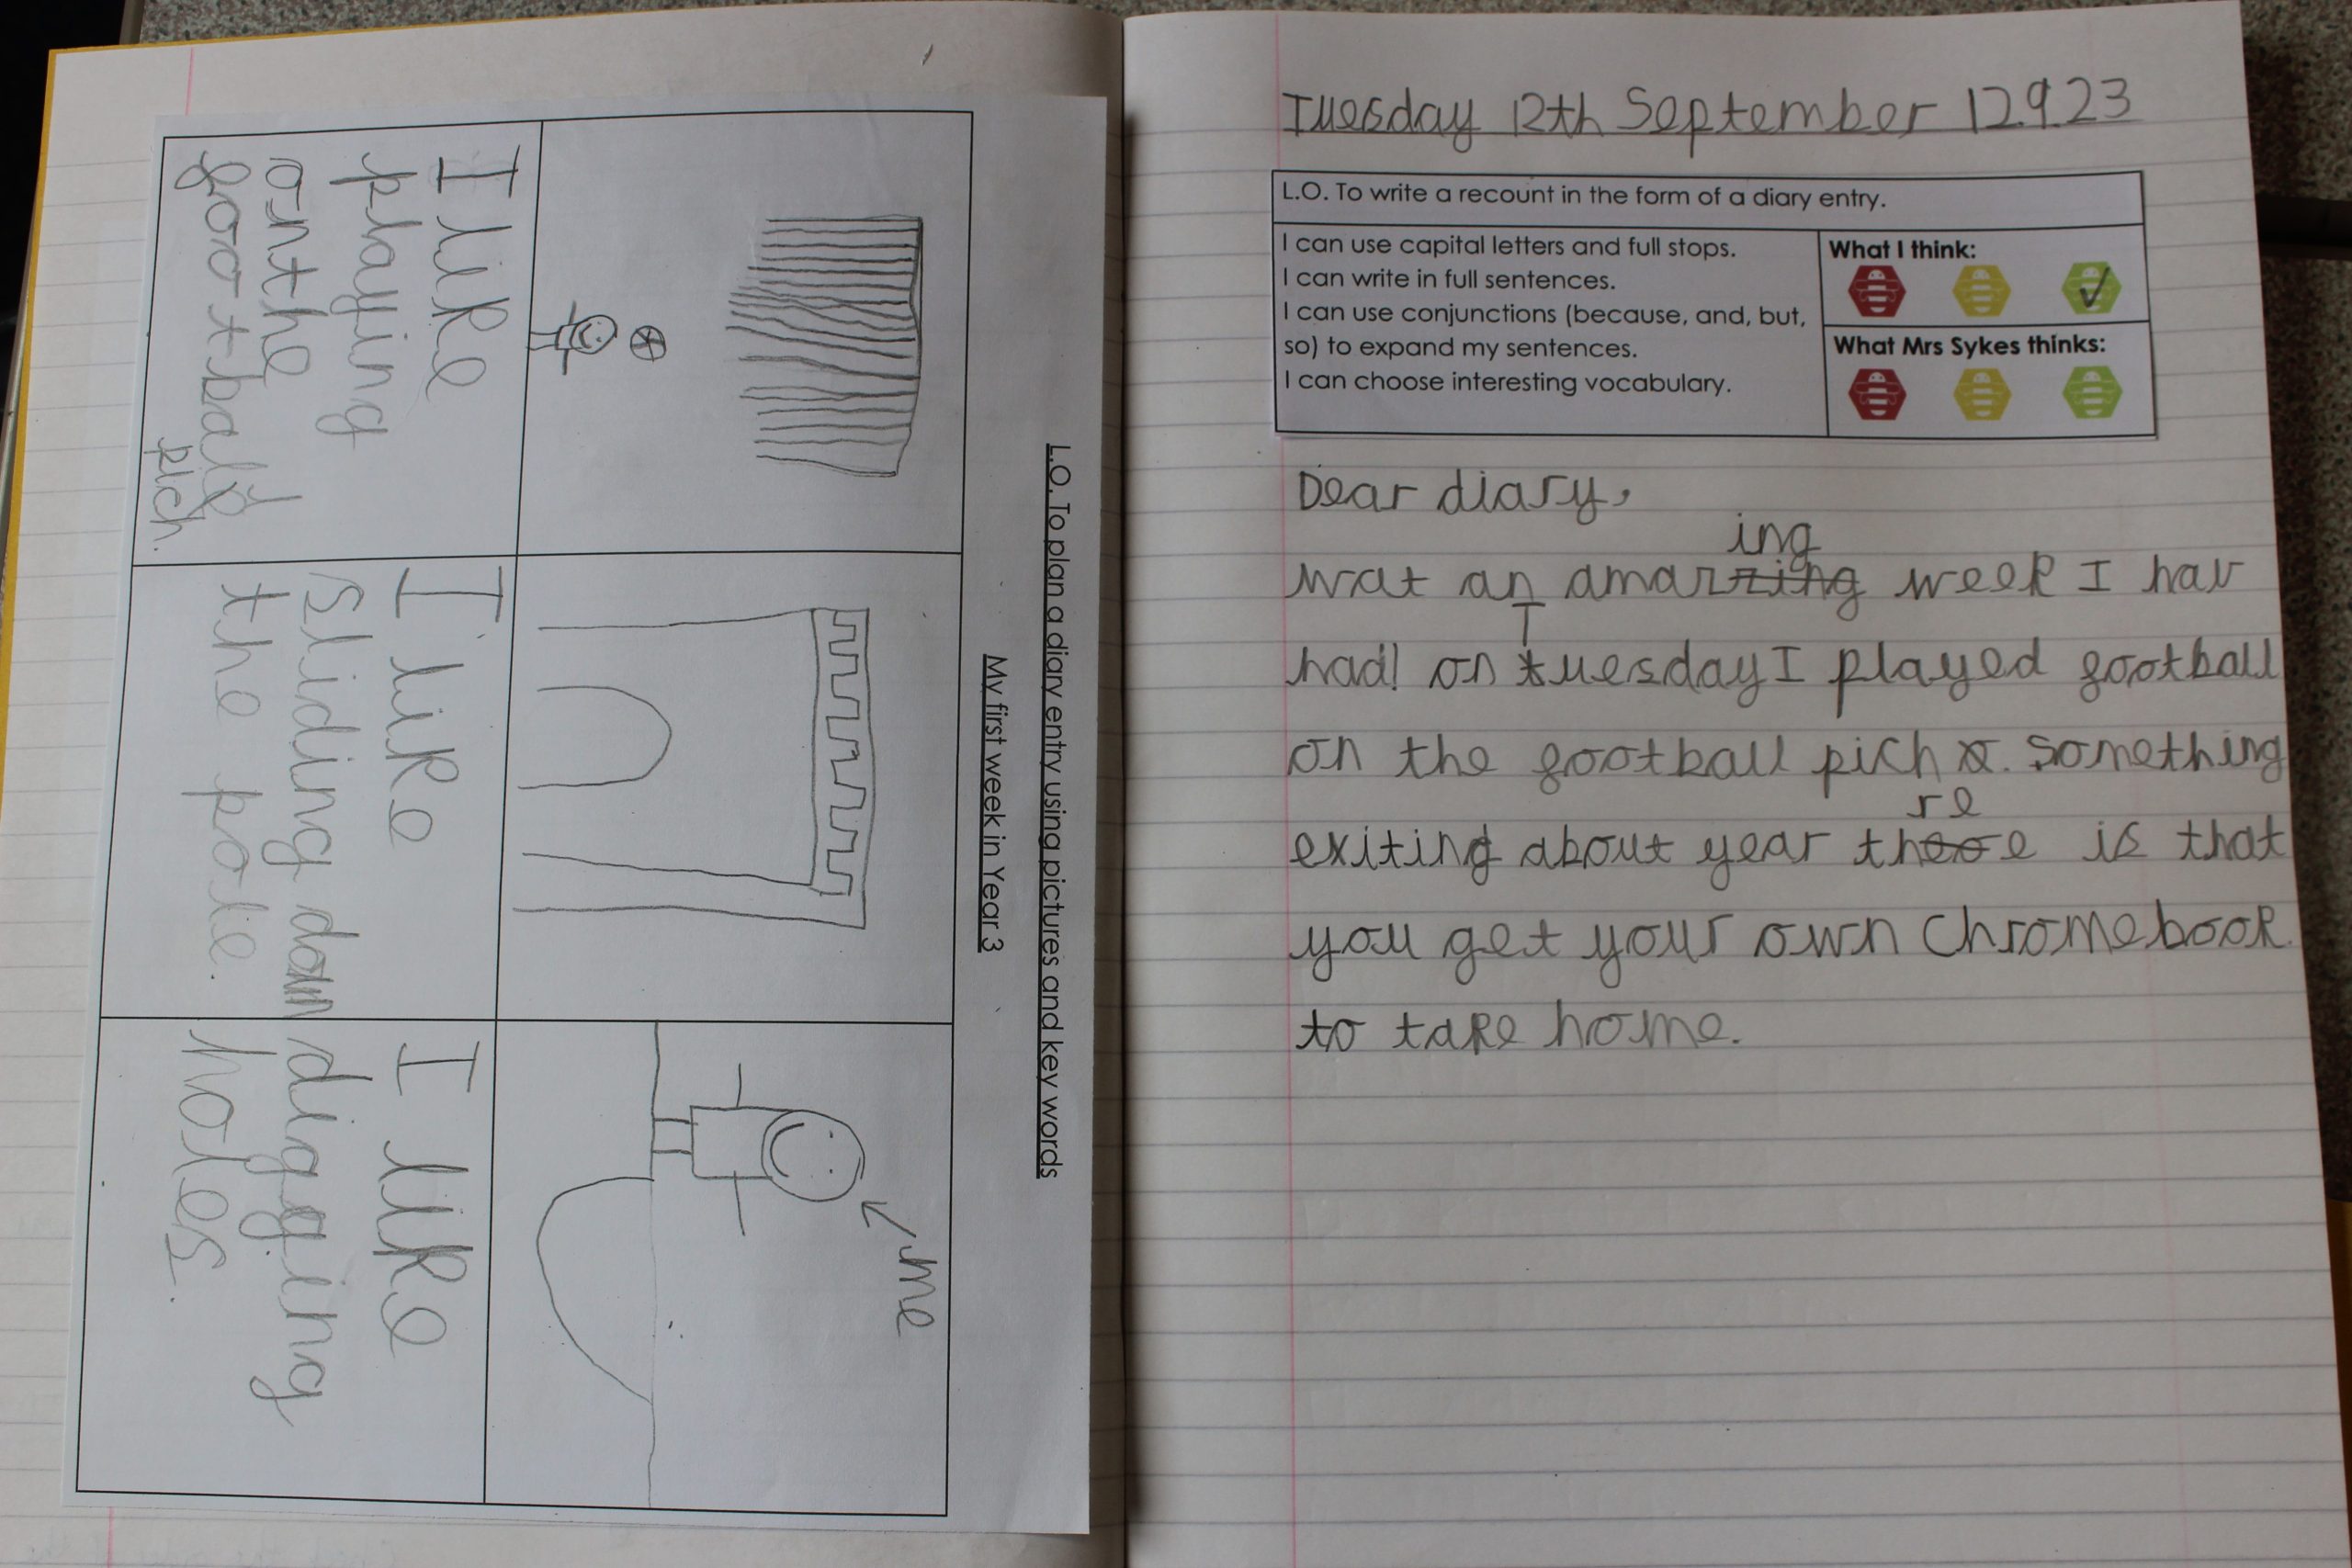 L.O. To plan a diary entry using pictures and key words
My first week in Year 3
me
I like
playing
onthe
football
pich.
I like
sliding down
the pole.
I like
digging
holes.
Tuesday 12th September 12.9.23
L.O. To write a recount in the form of a diary entry.
I can use capital letters and full stops.
I can write in full sentences.
I can use conjunctions (because, and, but,
so) to expand my sentences.
I can choose interesting vocabulary.
What I think:
What Mrs Sykes thinks:
Dear diary,
ing
wat an amarzing week I hav
T
had! on tuesday I played football
on the football pich. Something
re
exiting about year is that
you get your own Chromebook.
to take home.